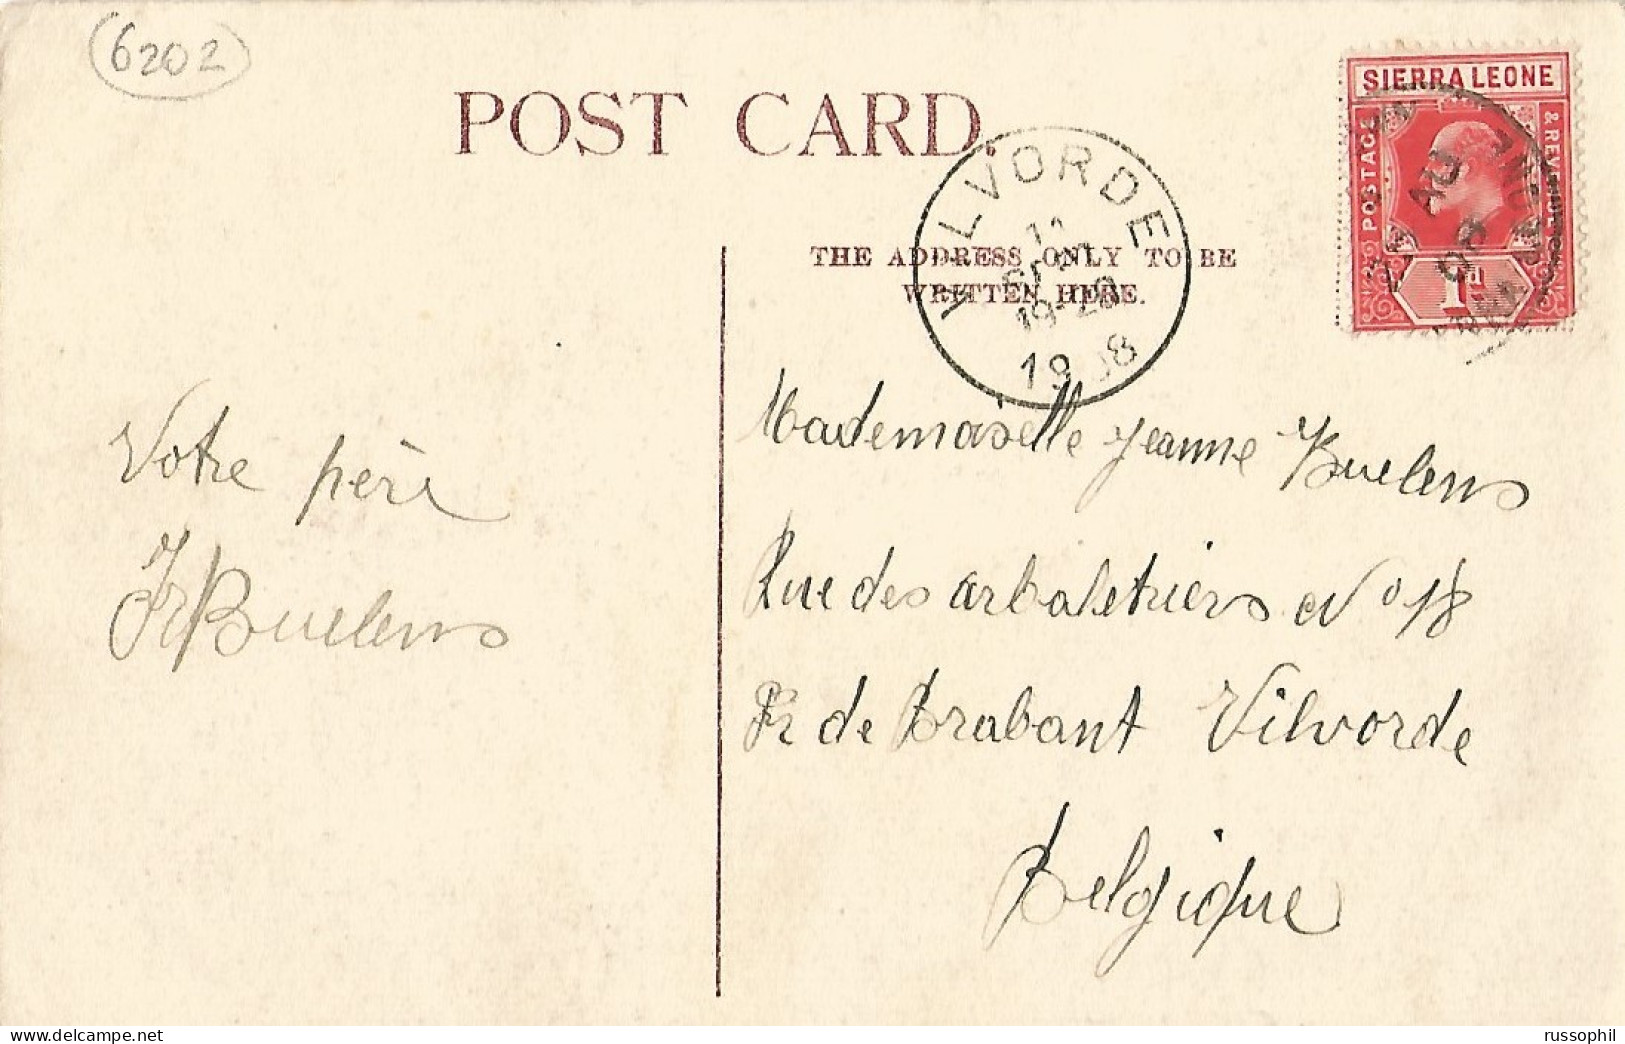 6202
POST CARD.
SIERRA LEONE
POSTAGE
& REVENUE
1d
AU
VILVORDE
19-20
1908
THE ADDRESS ONLY TO BE
WRITTEN HERE.
Votre père
Fr Buelens
Mademoiselle Jeanne Buelens
Rue des arbaletriers No 18
Pr de Brabant Vilvorde
Belgique
russophil